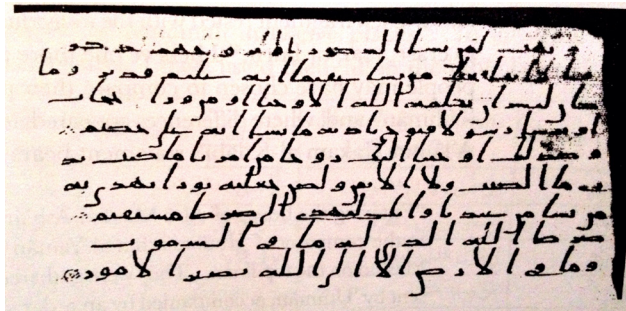 و يهب لمن يشا الذكور او يزوجهم ذكر
انا وانثا ويجعل من يشا عقيما انه عليم قدير وما
كان لبشر ان يكلمه الله الا وحيا او من وراى حجاب
او يرسل رسولا فيوحي باذنه ما يشا انه علي حكيم
وكذلك اوحينا اليك روحا من امرنا ما كنت تد
ري ما الكتب ولا الايمن ولكن جعلنه نورا نهدي به
من نشا من عبدنا وانك لتهدي الى صرط مستقيم
صرط الله الذي له ما في السموت
وما في الارض الا الى الله تصير الامور